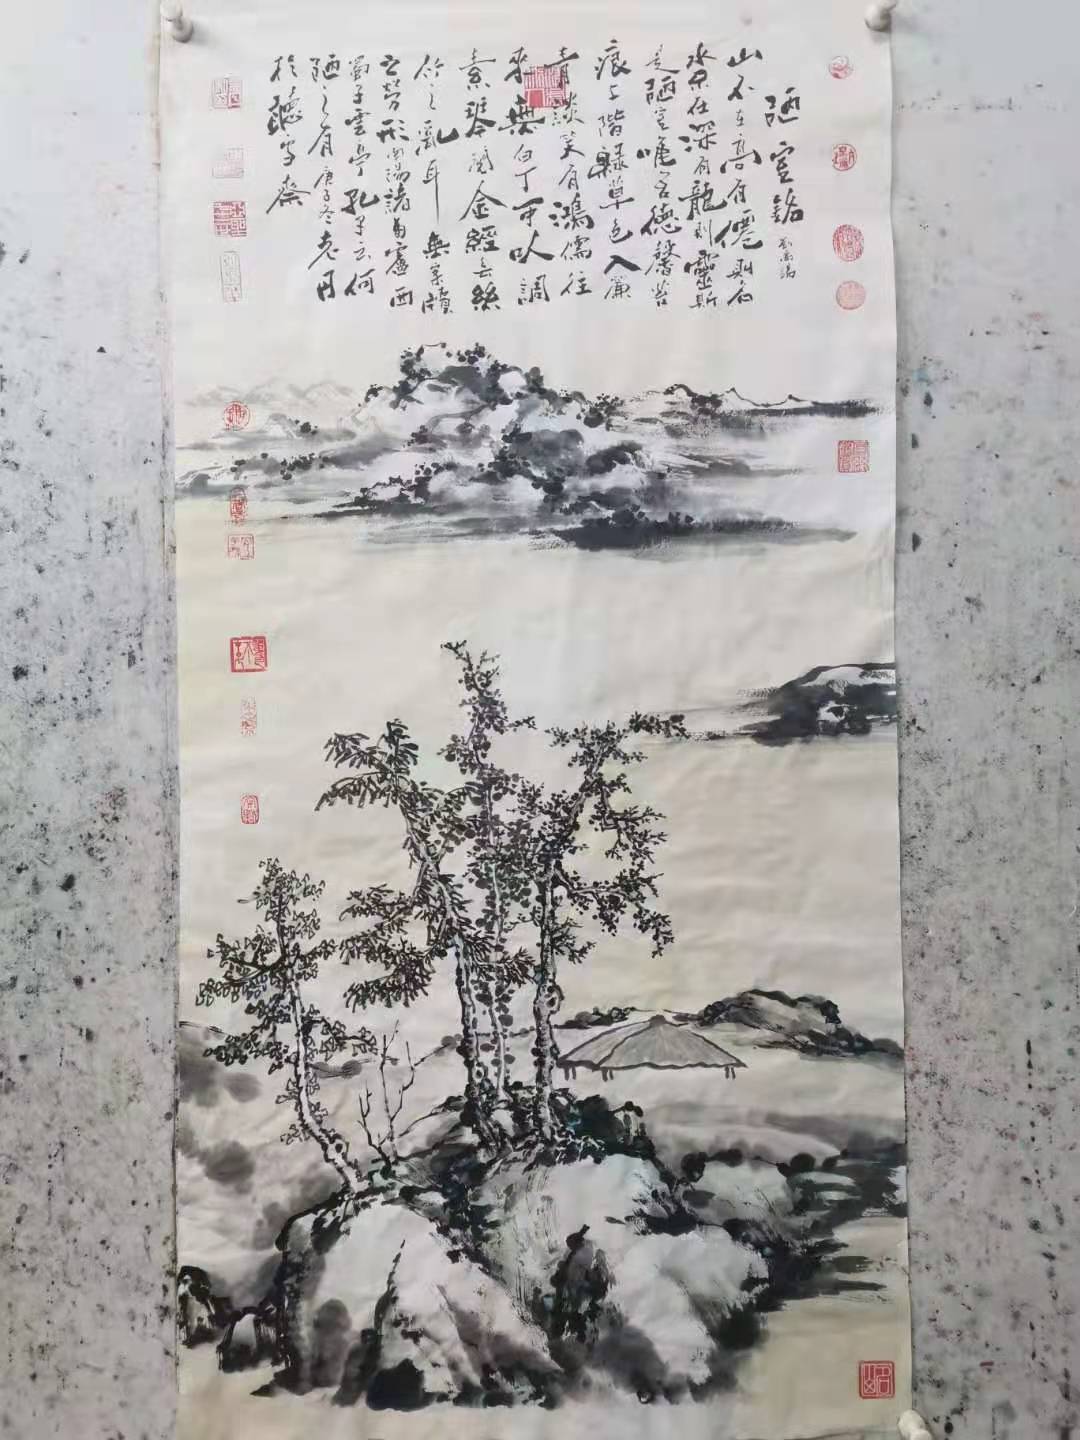 陋室銘 劉禹錫
山不在高有僊則名
水不在深有龍則靈斯
是陋室唯吾德馨苔
痕上階綠草色入簾
青談笑有鴻儒往
來無白丁可以調
素琴閱金經无絲
竹之亂耳無案牘
之勞形南陽諸葛廬西
蜀子雲亭孔子云何
陋之有庚子冬老丹
於聽雪齋